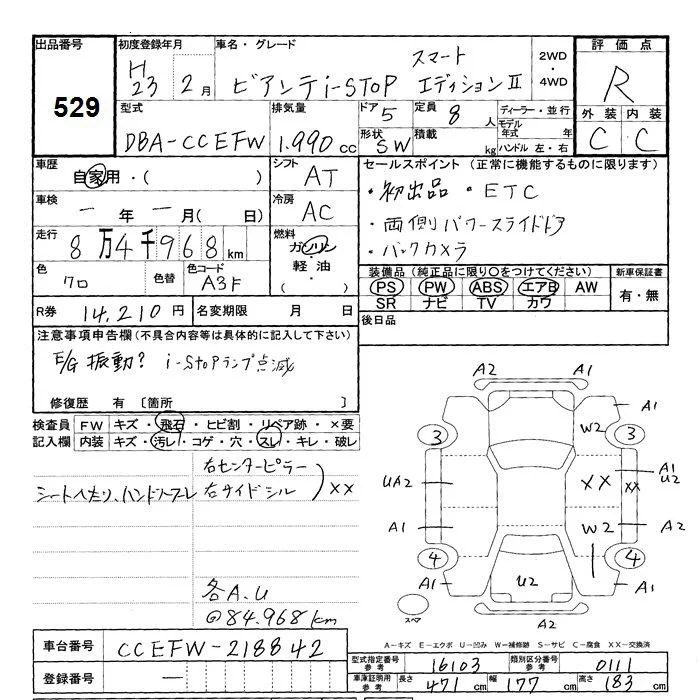 出品番号
529
初度登録年月
H
23 2月
車名・グレード
スマート
ビアンテi-STOP エディションⅡ
2WD
・
4WD
評価点
R
外装 内装
C C
型式
DBA-CCEFW
排気量
1.990cc
ドア
5
形状
SW
定員
8人
積載
kg
ディーラー・並行
モデル
年式 年
ハンドル 左・右
車歴
自家用・( )
シフト
AT
車検
一年一月( 日)
冷房
AC
走行
8万4千968km
燃料
ガソリン
・
軽油
( )
色
クロ
色替
色コード
A3F
R券
14,210円
名変期限 月 日
セールスポイント (正常に機能するものに限ります)
・初出品 ・ETC
・両側パワースライドドア
・バックカメラ
装備品(純正品に限り○をつけてください)
PS PW ABS エアB AW
SR ナビ TV カワ
新車保証書
有・無
後日品
注意事項申告欄(不具合内容等は具体的に記入して下さい)
E/G 振動? i-STOPランプ点滅
修復歴 有 〔箇所 〕
検査員
記入欄
FW キズ・飛石・ヒビ割・リペア跡・×要
内装 キズ・汚レ・コゲ・穴・スレ・キレ・破レ
右センターピラー
右サイドシル
××
シートヘタリ、ハンドルスレ
各A.U
@84.968km
A2 A2
A1
3 W2 3
UA2 ×× ×× A1
U2
A1 W2 A2
4 4
A1 U2 A1
スペア
A2
A－キズ E－エクボ U－凹み W－補修跡 S－サビ C－腐食 XX－交換済
車台番号
CCEFW-218842
登録番号
一
型式指定番号
参考
16103
類別区分番号
参考
0111
車庫証明用
参考
長さ
471cm
幅
177cm
高さ
183cm